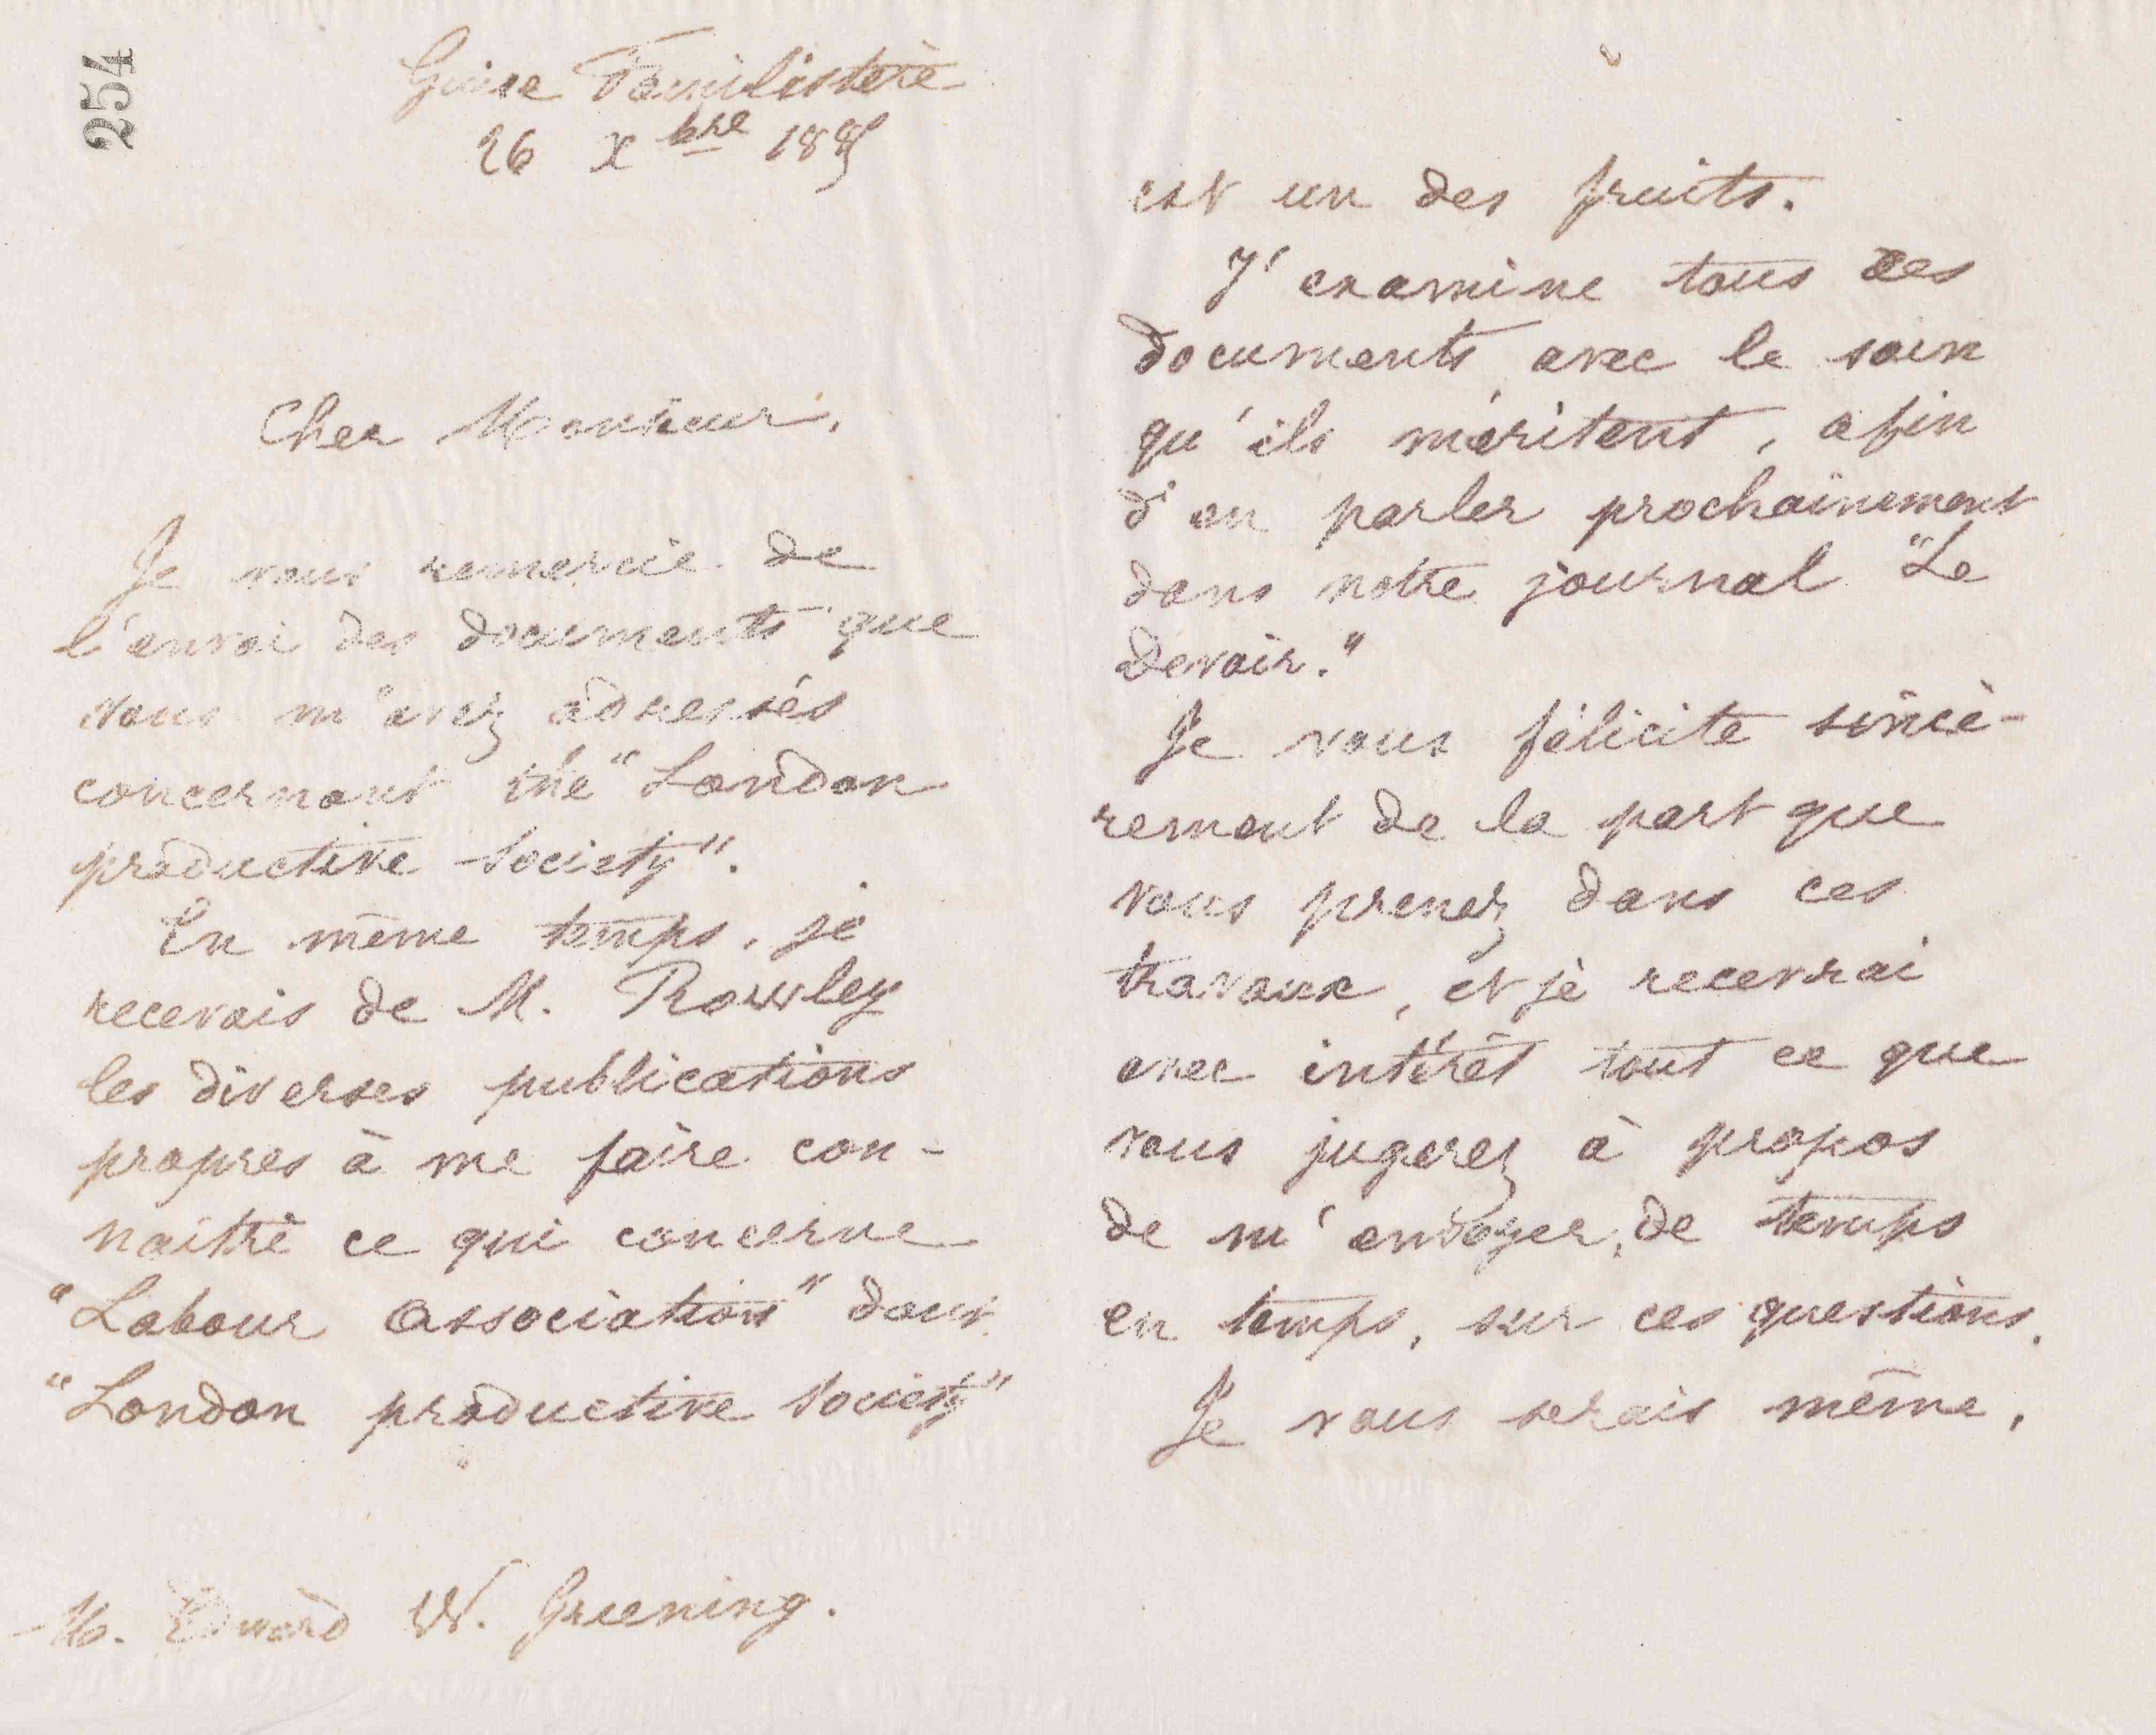 254
Guise Familistère
26 Xbre 1885
Cher Monsieur,
Je vous remercie de
l'envoi des documents que
vous m'avez adressés
concernant the "London
productive Society".
En même temps, je
recevais de M. Rowley
les diverses publications
propres à me faire con-
naître ce qui concerne
"Labour association" dont
"London productive Society"
M. Edward W. Greening.
est un des fruits.
J'examine tous ces
documents avec le soin
qu'ils méritent, afin
d'en parler prochainement
dans notre journal "Le
Devoir."
Je vous félicite sincè-
rement de la part que
vous prenez dans ces
travaux, et je recevrai
avec intérêt tout ce que
vous jugerez à propos
de m'envoyer, de temps
en temps, sur ces questions.
Je vous serais même,